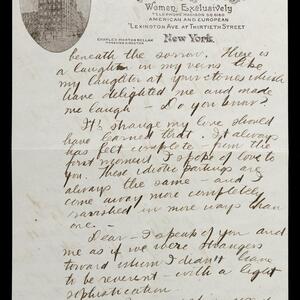 Women, Exclusively
TELEPHONE MADISON SQ 9160
AMERICAN AND EUROPEAN
LEXINGTON AVE AT THIRTIETH STREET
New York.
beneath the sorrow. There is
a laughter in my veins like
my laughter at your stories which
have delighted me and made
me laugh — Do you know?
It's strange my love should
have learned that. It always
has felt complete — from the
first moment I spoke of love to
you. These idiotic partings are
always the same — and I
come away more completely
ravished in more ways than
one.
Dear — I speak of you and
me as if we were strangers
toward whom I didn't have
to be reverent — with a light
sophistication